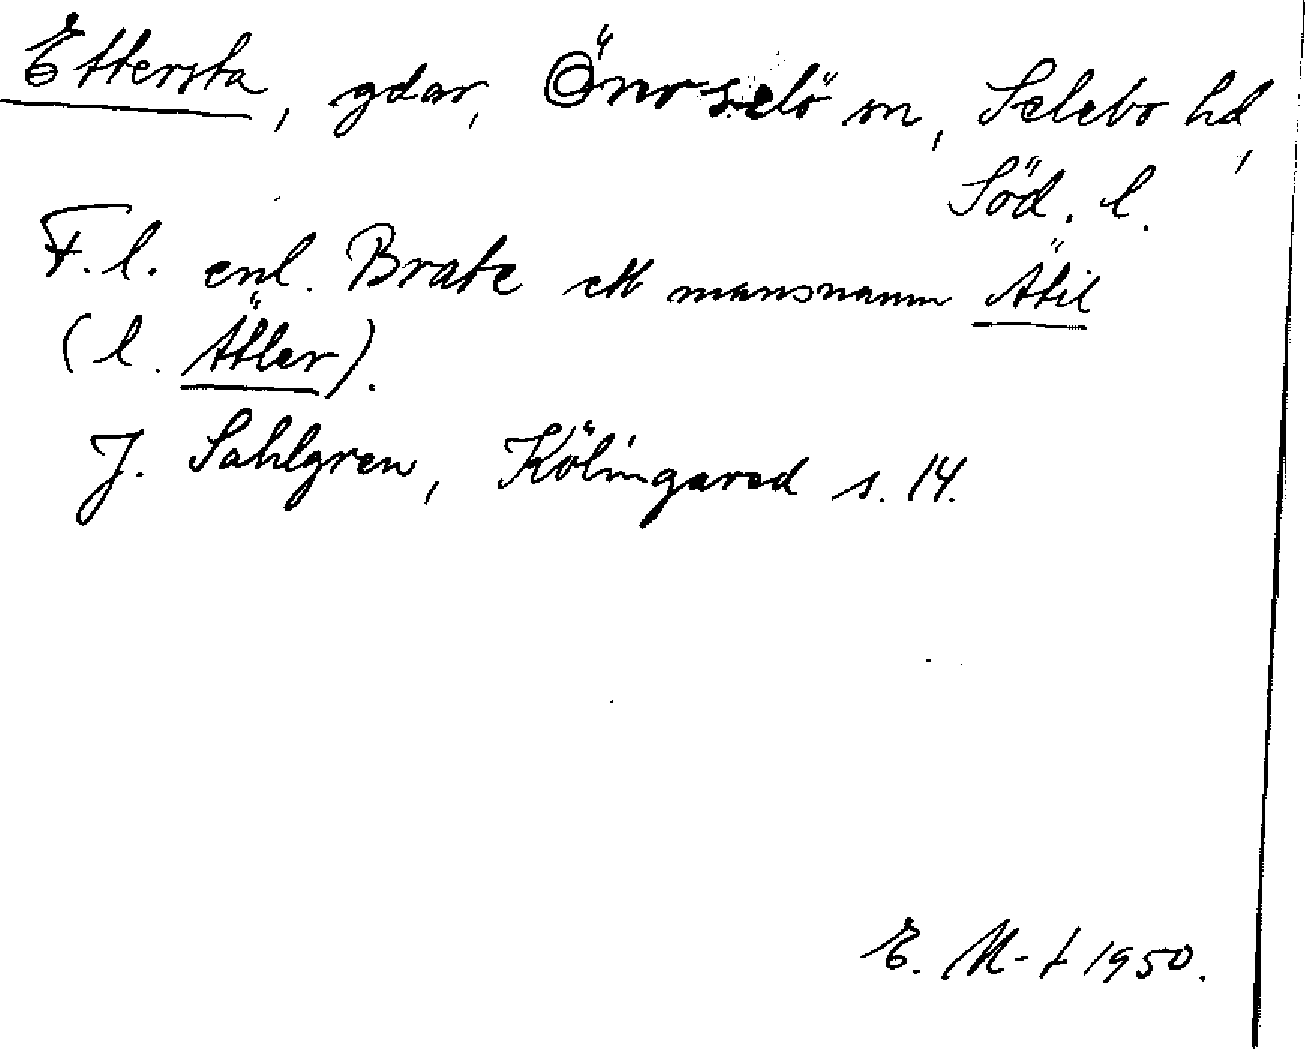 Ettersta, gdar, Överselö sn, Selebo hd,
Söd. l.
F.l. enl. Brate ett mansnamn Ätil
(l. Ätler).
J. Sahlgren, Kölingared s. 14.
E. M-t 1950.